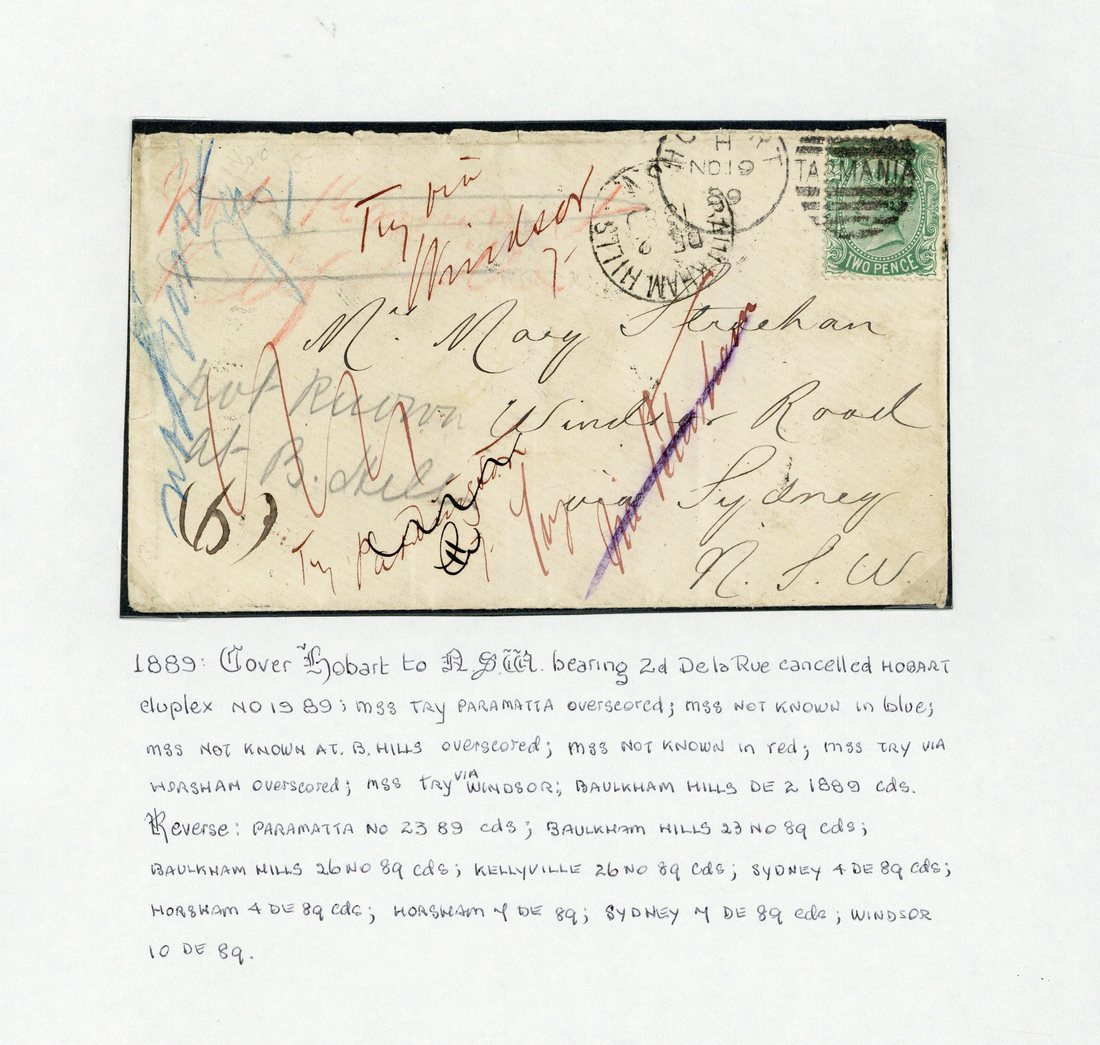 Try via
Windsor
HOBART
H
NO 19
89
TASMANIA
TWO PENCE
BAULKHAM HILLS
DE 2
Mrs Mary Strachan
Windsor Road
via Sydney
N. S. W.
not known
at B. Hills
Try
Try
via
1889: Cover Hobart to N.S.W. bearing 2d De la Rue cancelled HOBART
duplex NO 19 89; mss TRY PARAMATTA overscored; mss NOT KNOWN in blue;
mss NOT KNOWN AT. B. HILLS overscored; mss NOT KNOWN in red; mss TRY VIA
HORSHAM overscored; mss TRY VIA WINDSOR; BAULKHAM HILLS DE 2 1889 cds.
Reverse: PARAMATTA NO 23 89 cds; BAULKHAM HILLS 23 NO 89 cds;
BAULKHAM HILLS 26 NO 89 cds; KELLYVILLE 26 NO 89 cds; SYDNEY 4 DE 89 cds;
HORSHAM 4 DE 89 cds; HORSHAM 7 DE 89; SYDNEY 7 DE 89 cds; WINDSOR
10 DE 89.